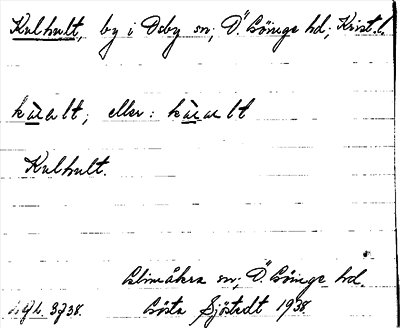 Kulhult, by i Osby sn; Ö. Göinge hd; Krist. l.
kàalt; eller: kàalt
Kulhult.
Glimåkra sn; Ö. Göinge hd.
Gösta Sjöstedt 1938.
3738.